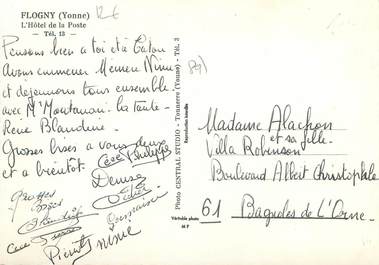 FLOGNY (Yonne)
L'Hôtel de la Poste
— Tél. 13 —
Pensons bien a toi et à
Avons emmener Mémère Ninie
et dejeunons tous ensemble
avec Mr la tante
Rene Blandine.
Grosses bises a vous deux
et a bientôt.
Denise
Grosses
bises
Pierrot
Ninie
Photo CENTRAL STUDIO - Tonnerre (Yonne) - Tél. 3
Reproduction interdite
Véritable photo
M F
Madame Alachon
et sa fille
Villa Robinson
Boulevard Albert Christophle
61 Bagnoles de L'Orne